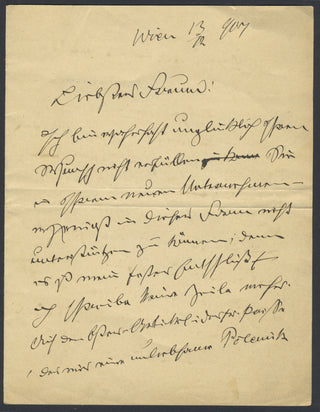 Wien 13/12 907
Liebster Freund!
Ich bin wahrhaft unglücklich Ihren
Wunsch nicht erfüllen Sie
in Ihrem neuen Unternehmen –
in dieser Form nicht
unterstützen zu können; denn
es ist mein fester Entschluß
ich schreibe keine Zeile mehr.
Auf den
, der mir eine unliebsame Polemik